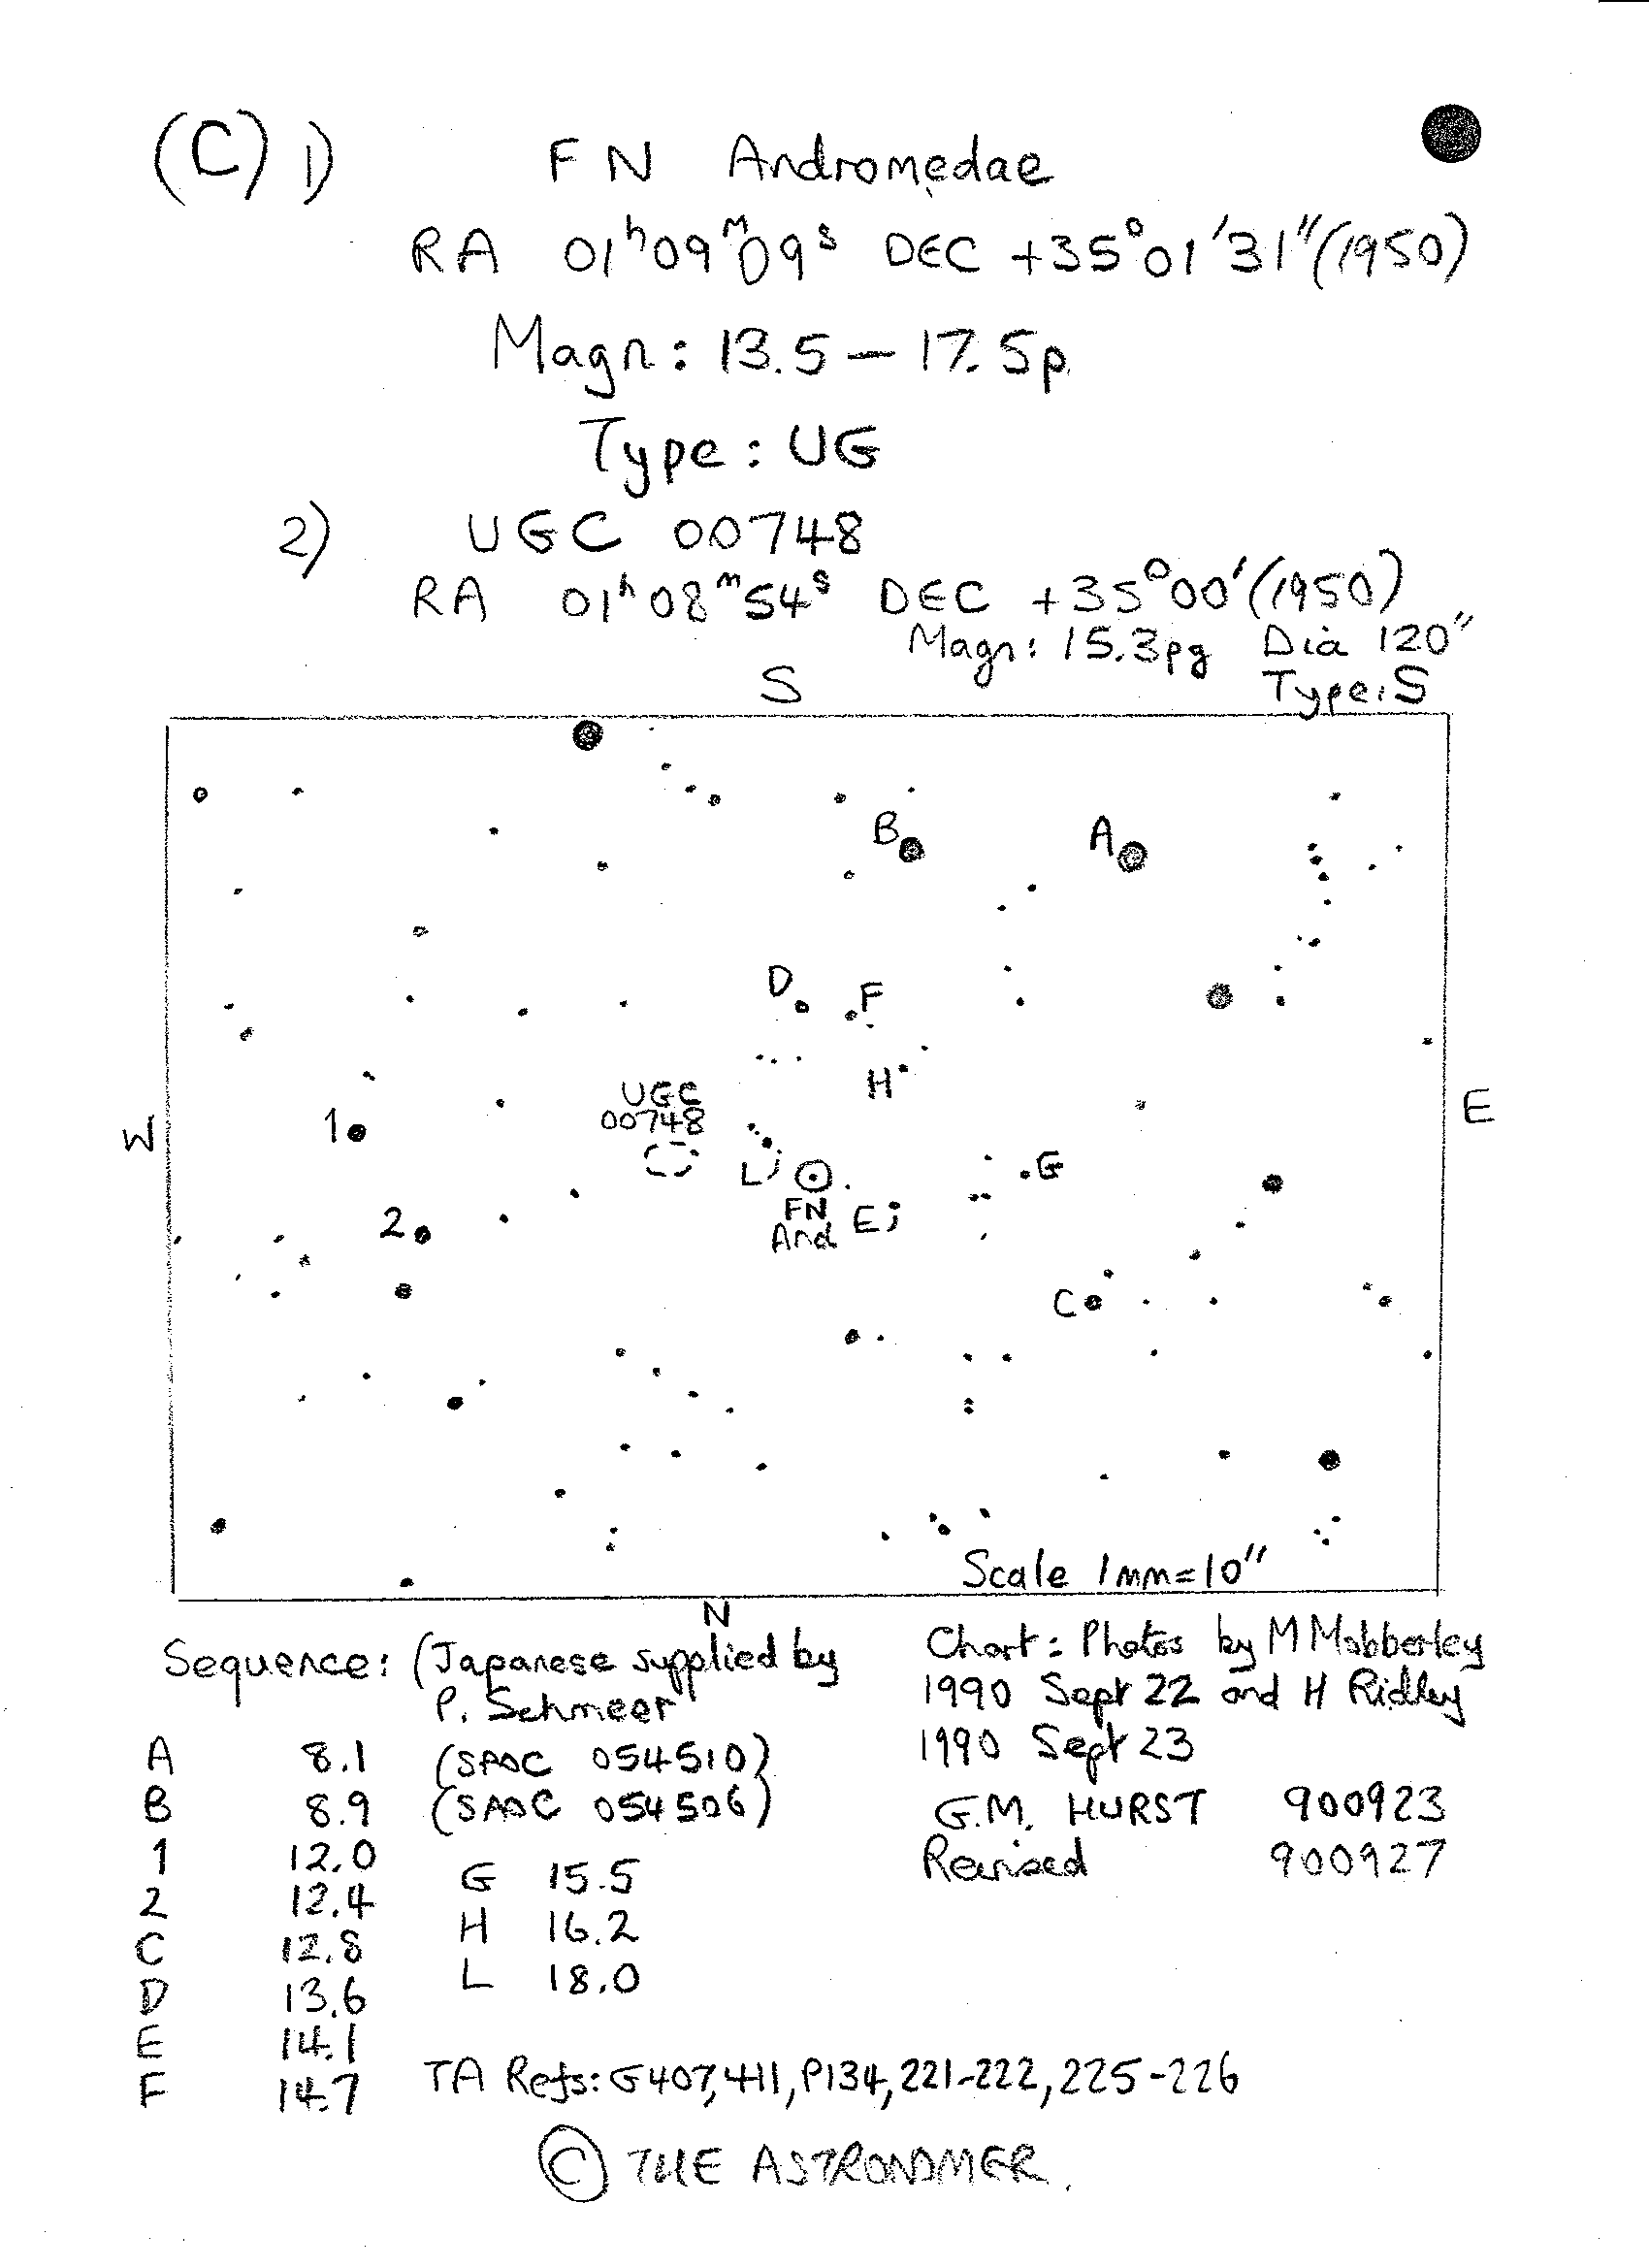 (C) 1) FN Andromedae
RA 01ʰ09ᵐ09ˢ DEC +35°01'31"(1950)
Magn: 13.5 – 17.5p
Type: UG
2) UGC 00748
RA 01ʰ08ᵐ54ˢ DEC +35°00'(1950)
Magn: 15.3pg Dia 120"
Type: S
S
B
A
D
F
H
UGC
00748
1
W
E
L
G
FN
And
E
2
C
Scale 1mm=10"
N
Sequence: (Japanese supplied by
P. Schmeer
A 8.1 (SAOC 054510)
B 8.9 (SAOC 054506)
1 12.0
2 12.4
C 12.8
D 13.6
E 14.1
F 14.7
G 15.5
H 16.2
L 18.0
Chart: Photos by M Mobberley
1990 Sept 22 and H Ridley
1990 Sept 23
G.M. HURST 900923
Revised 900927
TA Refs: G407,411,P134,221-222,225-226
© THE ASTRONOMER.